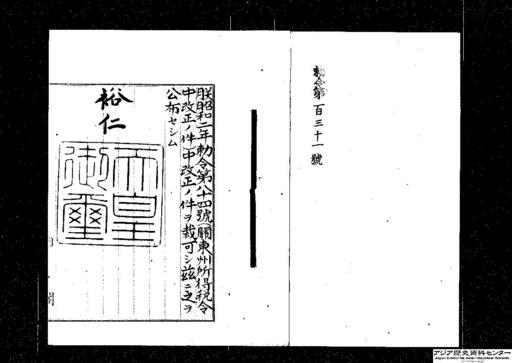 勅令第百三十一號
朕昭和二年勅令第八十四號(關東州所得税令
中改正ノ件)中改正ノ件ヲ裁可シ茲ニ之ヲ
公布セシム
裕仁
天皇御璽
閣
アジア歴史資料センター
Japan Center for Asian Historical Records